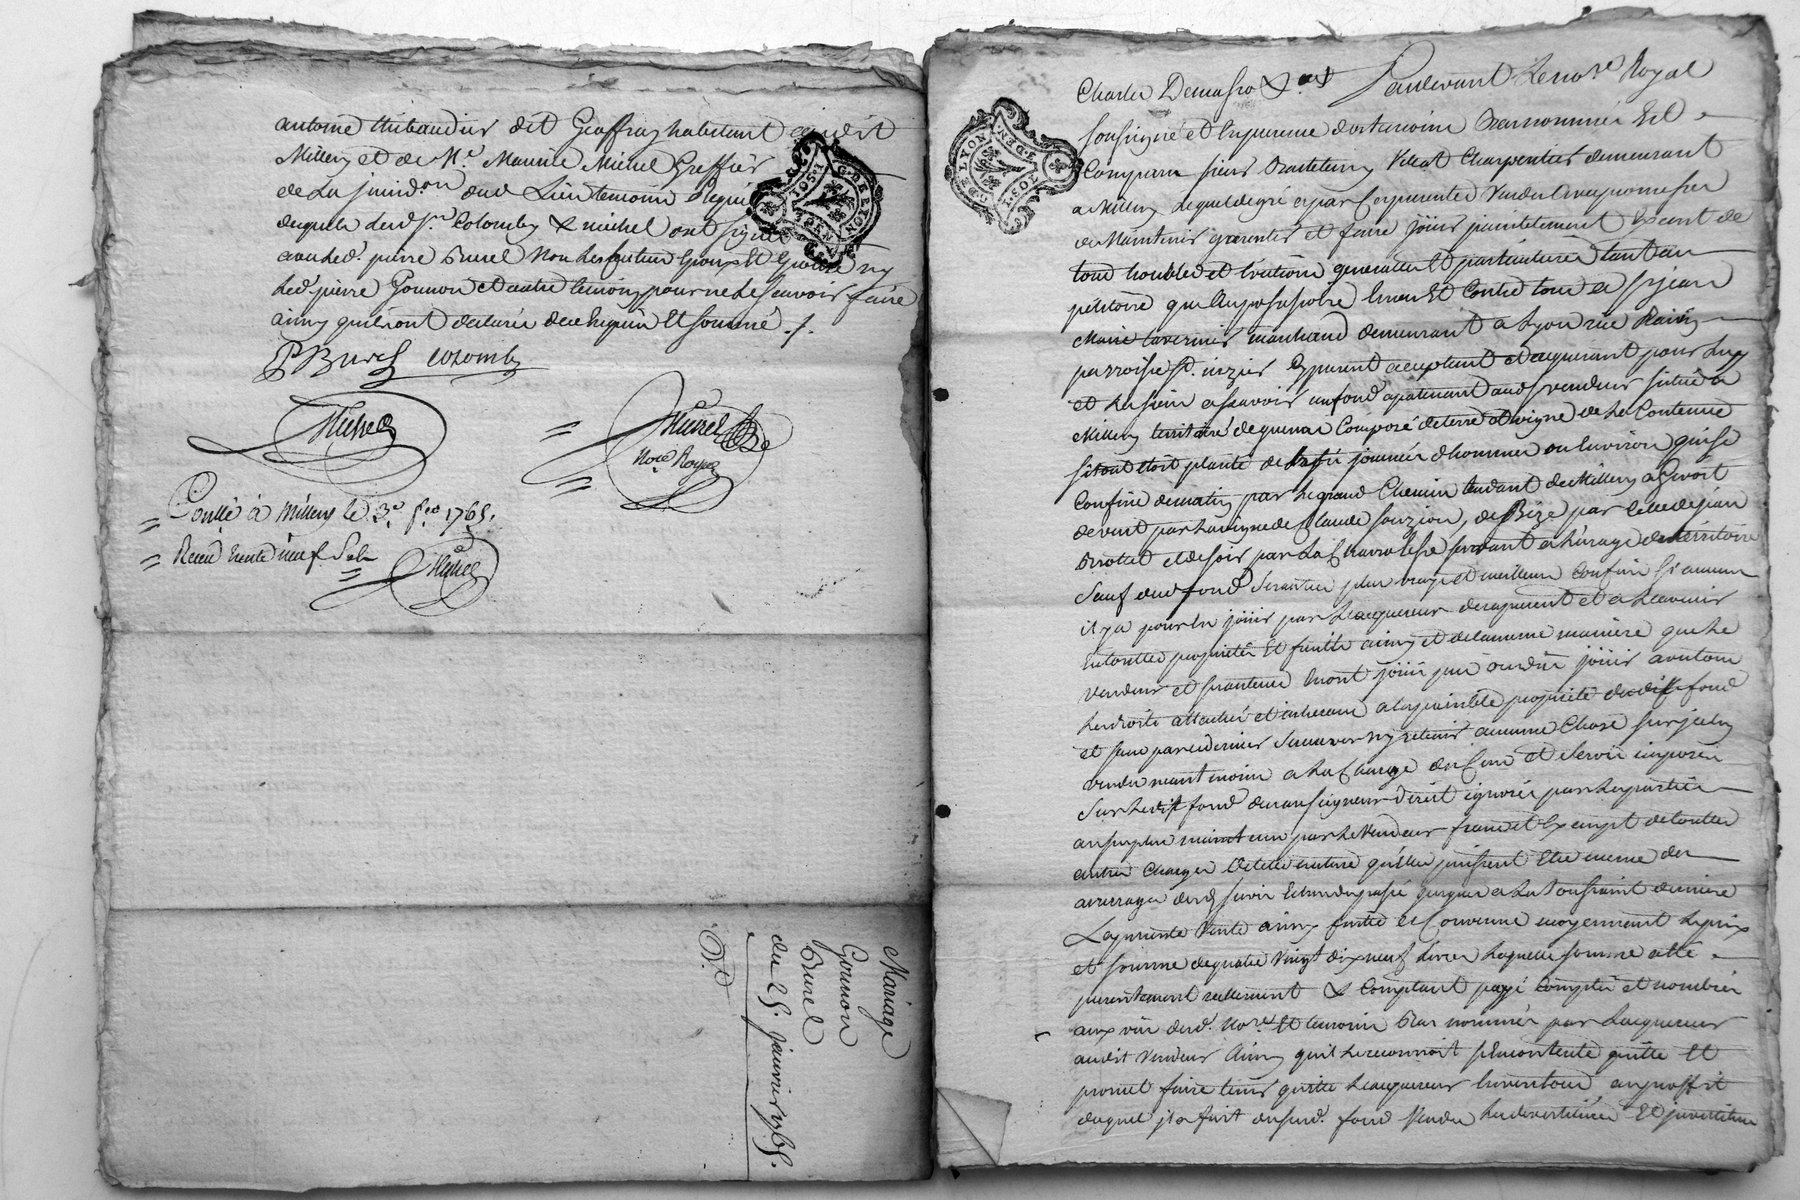 antoine thibaudier dit Geoffray habitant audit
Millery et de Me. Maurice Michel Greffier
de La juridon dud Lieu temoins Requis
desquels Lesd Sr. Colomby & michel ont signé
avec led. pierre Burel Non Les futeurs Epoux Et ny
Led. pierre Gounon et autre temoins pour ne Le scavoir faire
ainsy quil ont declaré de ce Enquis Et sommé ./.
PBurel colomby
Michel
Michel
Nore. Royal
Conllé à Millery le 3e. feo. 1765.
Receu trente neuf Sols
Michel
Mariage
Gounon
Burel
du 25. janvier 1765.
DE LYON
G. DE LYON
Pardevant Le nore Royal
soussigné et En presence des temoins Bas nommés Est
Comparu sieur Viliat Charpentier demeurant
a Millery Lequel de gré a par Ces presentes Vendu Avec promesses
de Maintenir garentir et faire jouir paisiblement Exempt de
tous troubles et Evictions generallement particulieres tant au
petitoire que Au possessoire Envers Et Contre tous a sr jean
Marie tavernier marchand demeurant a Lyon rüe
parroisse St. nizier cy present aceptant et aquerant pour Luy
et Les siens a scavoir un fond apartenant aud Sr vendeur situé a
Millery territoire de Composé de terre et vigne de La Contenue
si tout etoit planté de journées d'hommes ou Environ qui se
Confine de matin par Le grand Chemin tendant de Millery a Givort
de vent par La vigne de Claude de Bize par Celle de jean
Brottet et de soir par La Charrolesse servant a L'usage du territoire
Sauf dud fond Ses autres plus vrays et meilleurs Confins Si aucuns
il y a pour En jouir par L'acquereur des a present et a L'avenir
En toutte proprieté Et fruits ainsy et de la meme maniere que Le
vendeur et ses auteurs En ont jouï pû ou dûs jouir avec tous
Les droits attachés et inherans a La paisible proprieté dud fond
et sans par ce dernier Sen reserver ny retenir aucune Chose sur jceluy
vendu neantmoins a La Charge des Cens et Servis imposés
Sur Led fond du au Seigneur direct ignorés par Les parties
au surplus maintenu par Le Vendeur franc et Exempt de touttes
autres Charges De telle nature qu'elles puissent Etre meme des
arrerages desd servis Echus du passé jusques a La toussaint derniere
La presente Vente ainsy faitte et Convenue moyennant Le prix
et somme de quatre vingt dix neuf Livres Laquelle somme a été
presentement reellement & Comptant payé Comptée et nombrée
aux vûs dud. Nore. Et temoins Bas nommés par L'acquereur
audit Vendeur Ainsy quil Le reconnoit s'en contente quitte Et
promet faire tenir quitte L'acquereur Envers tous au proffit
duquel il s'est fait dud. fond Vendu Les devestiture Et jnvestiture